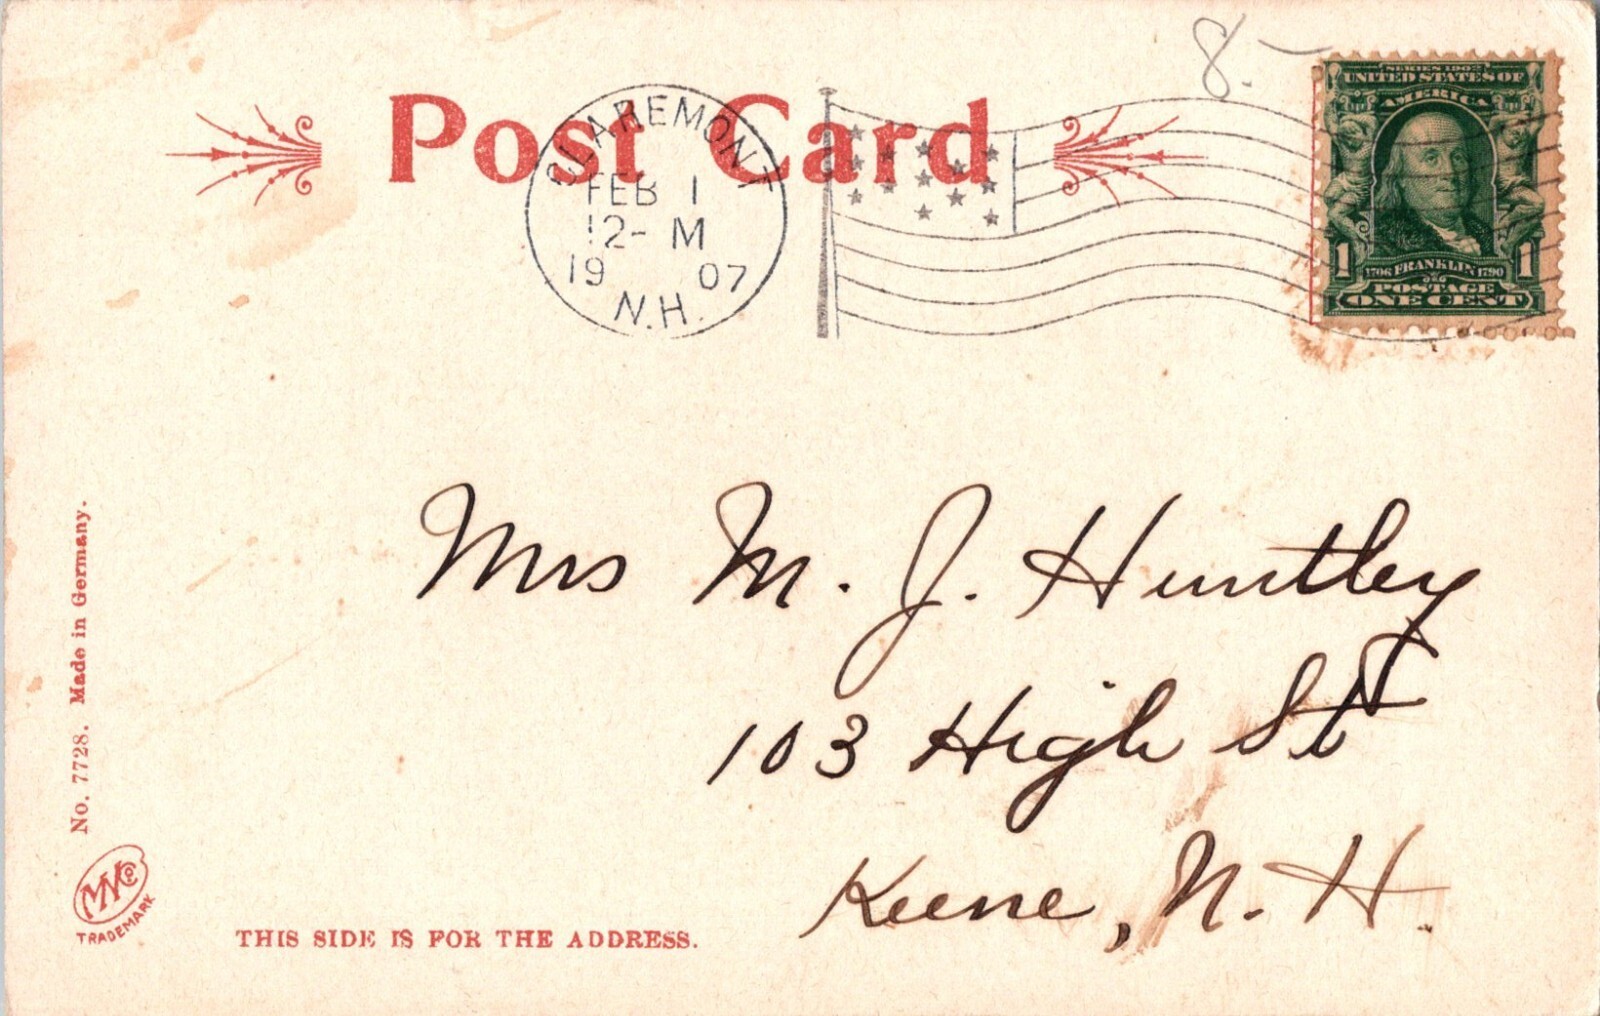 8.–
Post Card
CLAREMONT
FEB 1
12- M
19 07
N.H.
SERIES 1902
UNITED STATES OF
AMERICA
1 1
1706 FRANKLIN 1790
POSTAGE
ONE CENT
Mrs M. J. Huntley
103 High St
Keene, N. H.
No. 7728. Made in Germany.
TRADEMARK
THIS SIDE IS FOR THE ADDRESS.